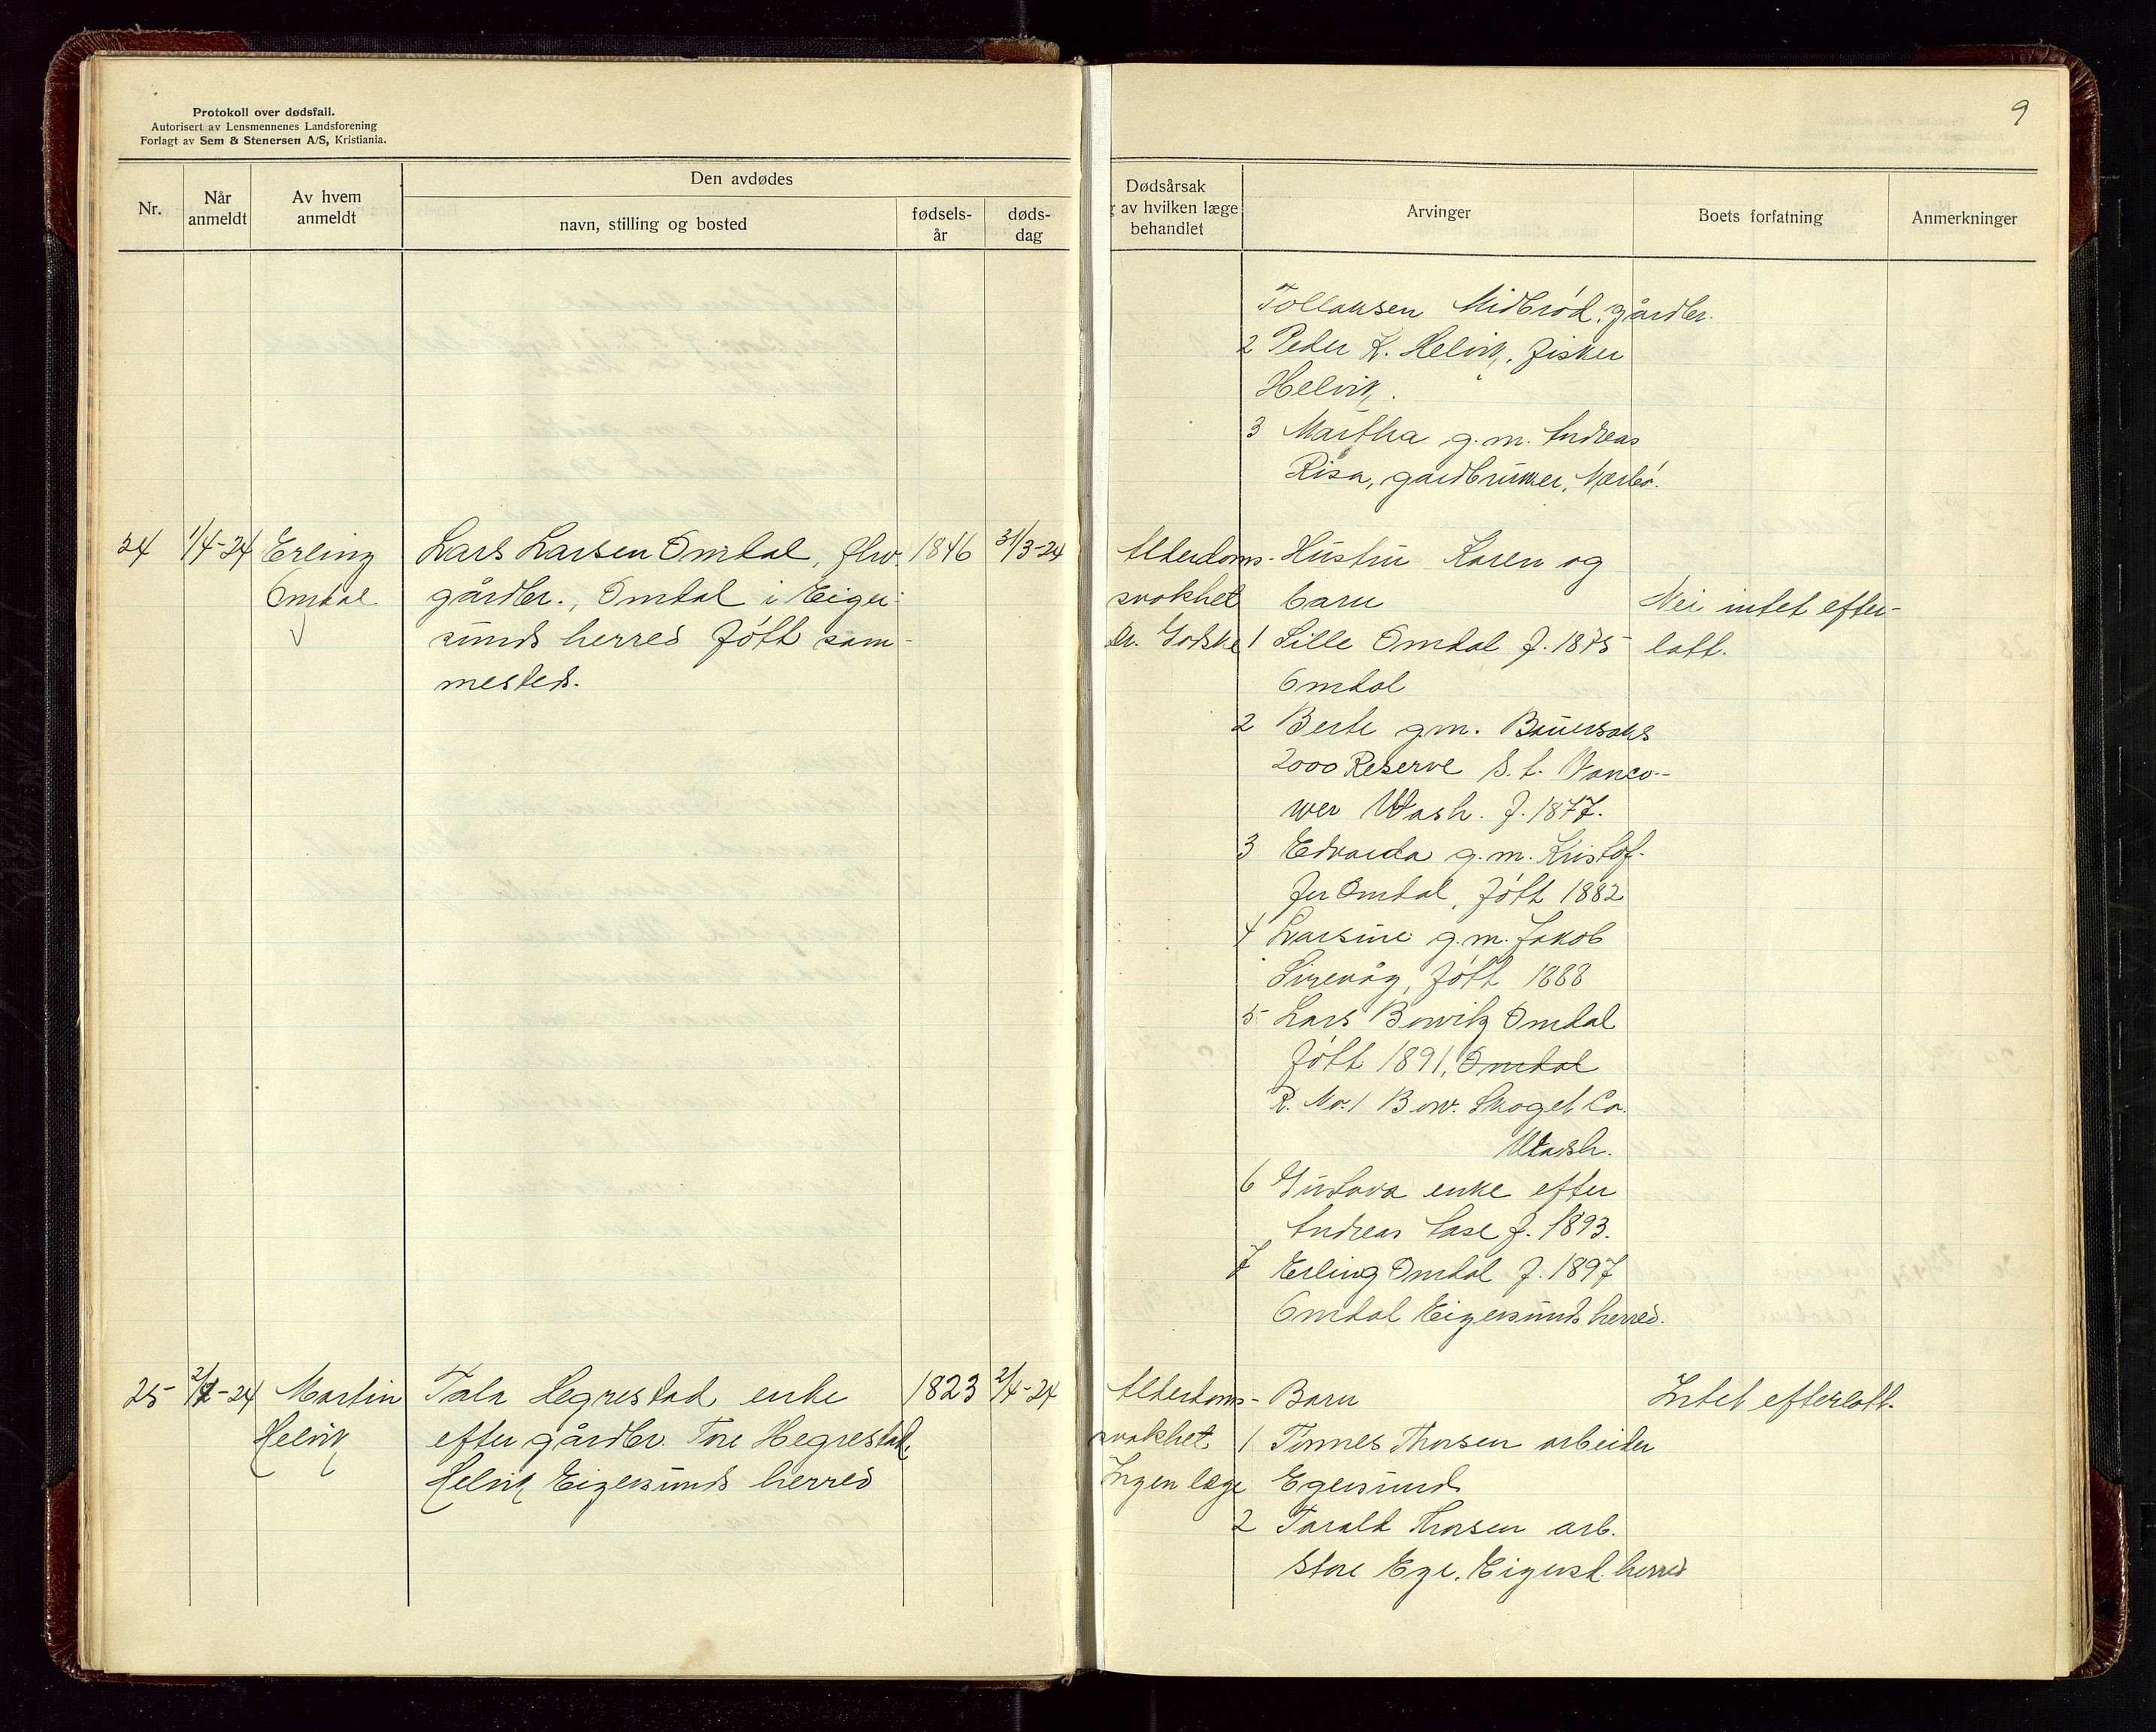 Protokoll over dødsfall.
Autorisert av Lensmennenes Landsforening
Forlagt av Sem & Stenersen A/S, Kristiania.
9
Nr.
Når anmeldt
Av hvem anmeldt
Den avdødes
navn, stilling og bosted
fødsels-år
døds-dag
Dødsårsak
av hvilken læge
behandlet
Arvinger
Boets forfatning
Anmerkninger
Tollaksen Midbrød, gårdbr.
2 Peder K. Helvik, fisker
Helvik.
3 Martha g.m. Andreas
Risa, gardbruker, Nærbø.
24 1/4-24 Erling
Omdal
Lars Larsen Omdal, fhv.
gårdbr., Omdal i Eiger-
sunds herred født sam-
mesteds.
1846 31/3-24
Alderdoms-
svakhet
Dr. Godske
Hustru Karen og
barn
1 Lille Omdal f. 1875
Omdal
2 Berte g.m.
2000 Reserve S.t. Vanco-
wer Wash. f. 1877.
3 Edvarda g.m. Kristof-
fer Omdal, født 1882
4 Larsine g.m. Jakob
Sirevåg, født 1888
5 Lars Bowitz Omdal
født 1891, Omdal
R. No. 1 Bow. Skaget Co.
Wash.
6 Gustava enke efter
Andreas Aase f. 1893.
7 Erling Omdal f. 1897
Omdal Eigersunds herred.
Nei intet efter-
latt.
25 2/4-24 Martin
Helvik
Tala Hegrestad enke
efter gårdbr. Tore Hegrestad,
Helvik Eigersunds herred
1823 2/4-24
Alderdoms-
svakhet
Ingen læge
Barn
1 Tønnes Thorsen arbeider
Egersund
2 Tarald Thorsen arb.
Store Ege. Eigersd. herred
Intet efterlatt.